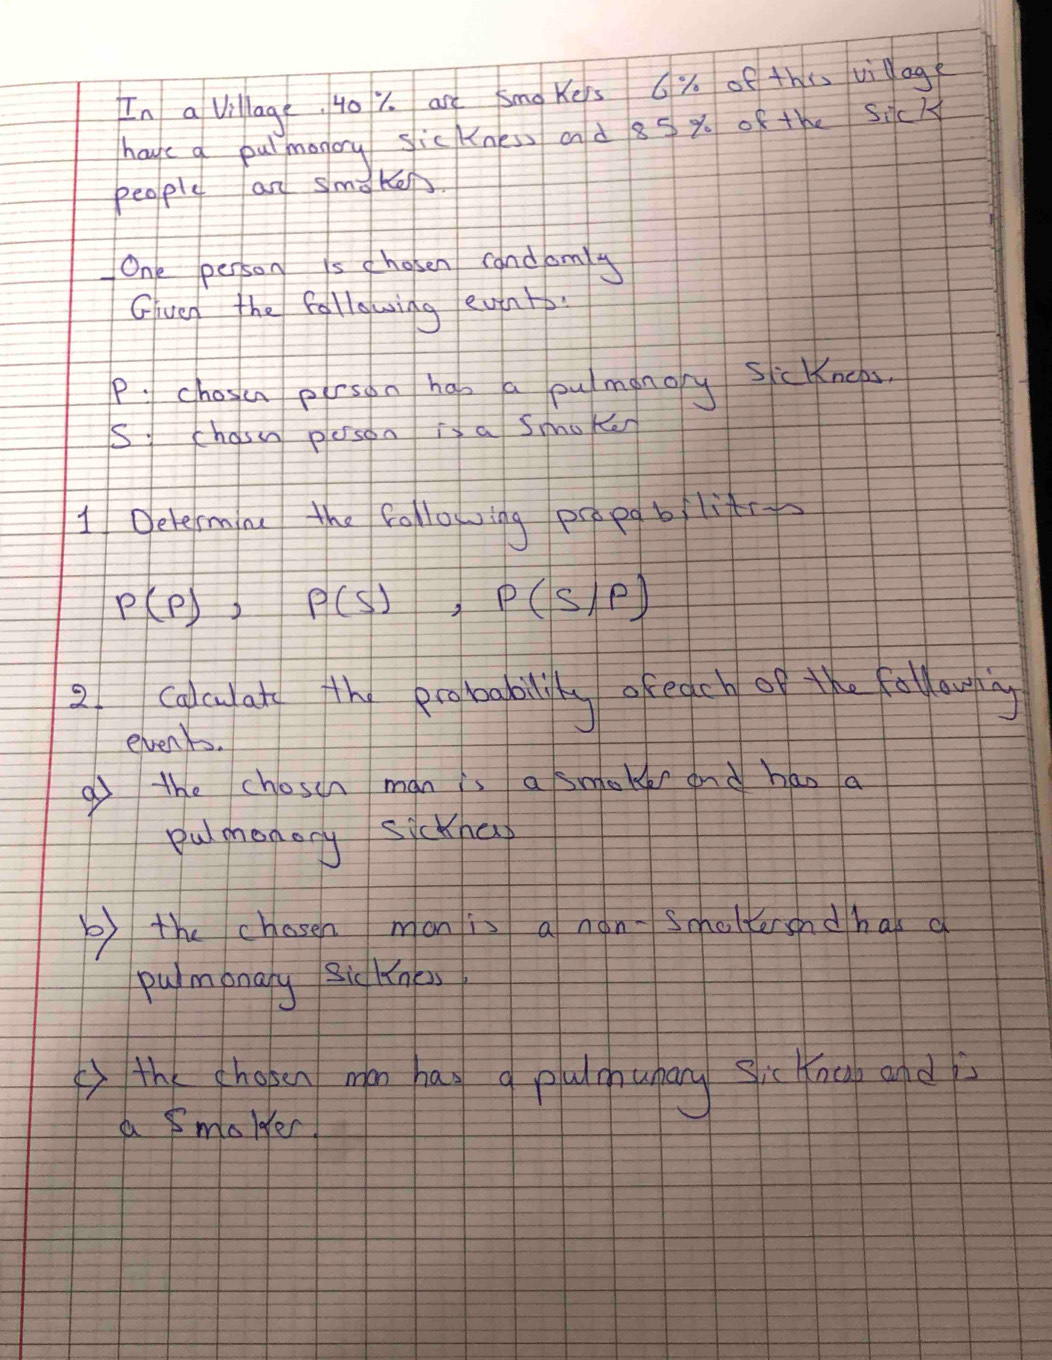 In a Village .40% are smokers 6% of this village
have a pulmonory sickness and 85% of the sick
people are smokers.
- One person is chosen randomly
Given the following events:
P: chosen person has a pulmonory sickness.
S: chosen person is a smoker
1. Determine the following propabilities
P(P), P(S), P(S/P)
2. Calculate the probability of each of the following
events.
a) the chosen man is a smoker and has a
pulmonory sickness
b) the chosen man is a non-smoker and has a
pulmonary sickness.
c) the chosen man has a pulmunary sickness and is
a smoker.